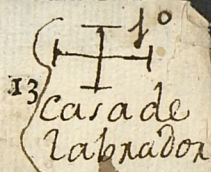 1º
13
casa de
labrador